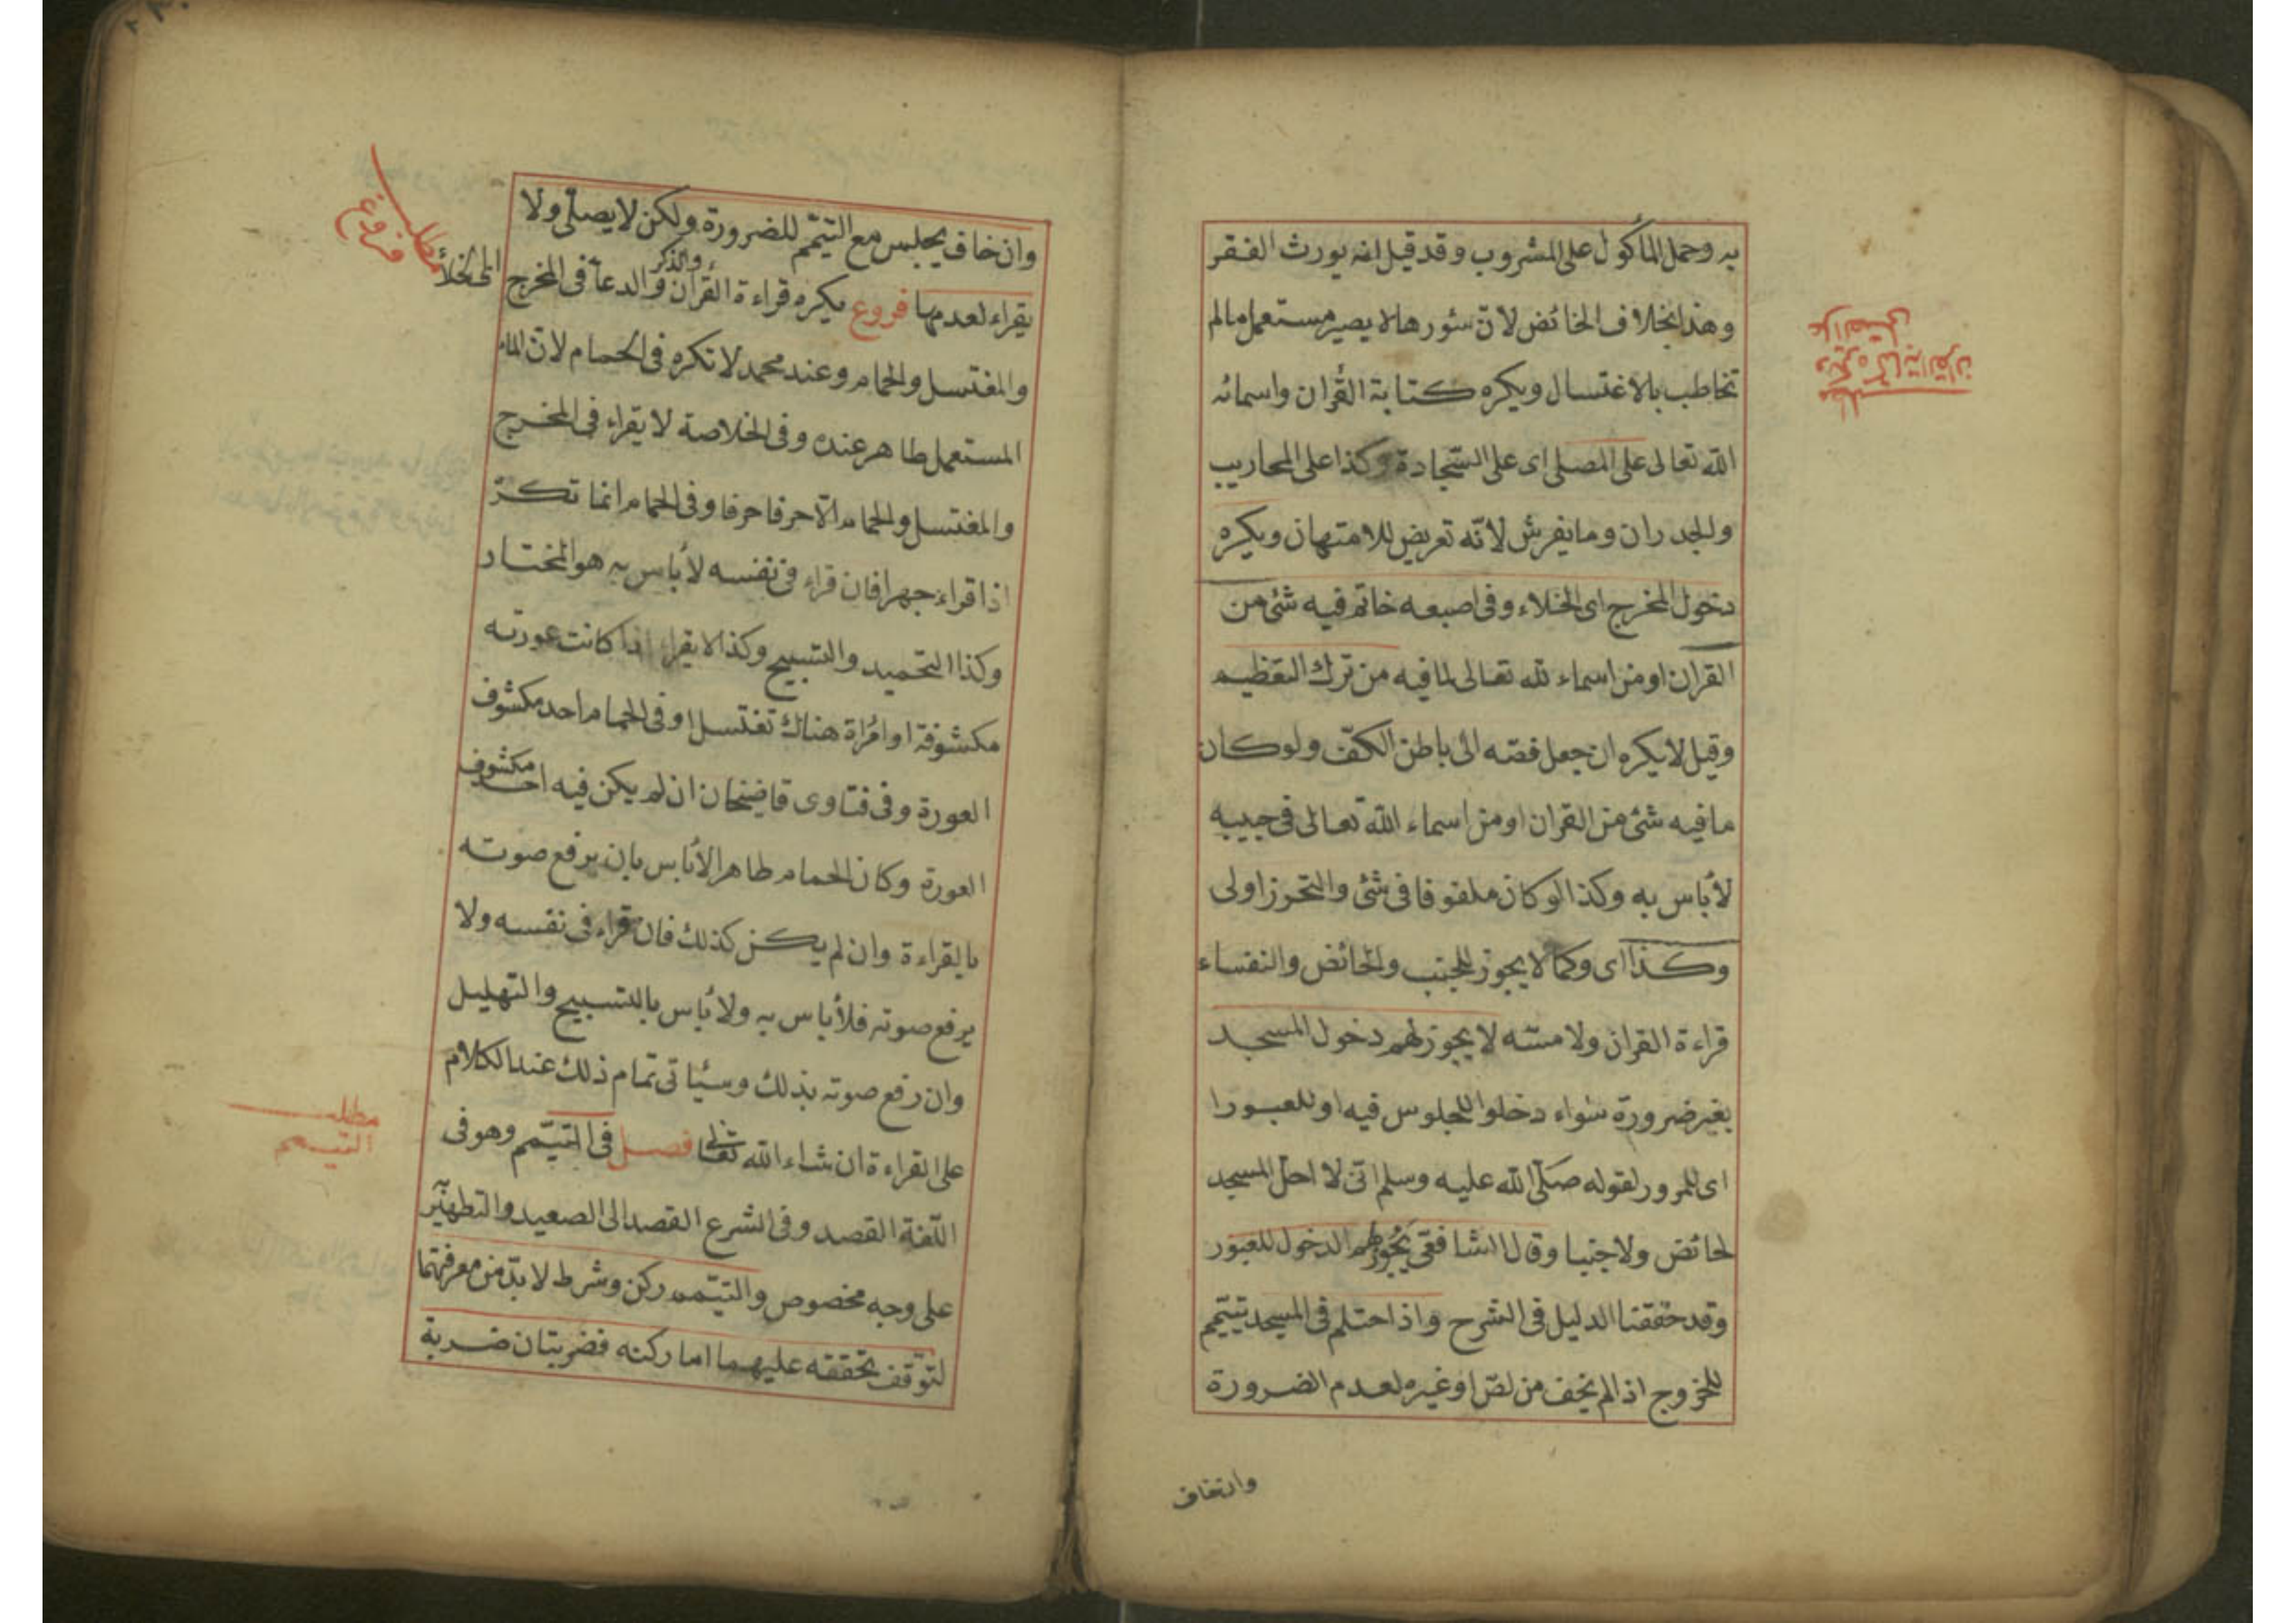 به وحمل المأكول على المشروب وقد قيل انه يورث الفقر
وهذا بخلاف الحائض لانّ سئورها لا يصير مستعملا مالم
تخاطب بالاغتسال ويكره كتابة القرأن واسمائه
الله تعالى على المصلى اى على السّجادة وكذا على المحاريب
والجدران وما يفرش لانّه تعريض للامتهان ويكره
دخول المخرج اى الخلاء وفى اصبعه خاتم فيه شئ من
القران او من اسماء لله تعالى لما فيه من ترك التعظيم
وقيل لا يكره ان جعل فصّه الى باطن الكفّ ولو كان
ما فيه شئ من القران او من اسماء الله تعالى فى جيبه
لأباس به وكذا لو كان ملفوفا فى شئ والتحرز اولى
وكذا اى وكما لا يجوز للجنب والحائض والنفساء
قراءة القران ولا مسّه لا يجوز لهم دخول المسجد
بغير ضرورة سواء دخلوا للجلوس فيه او للعبورا
اى للمرور لقوله صلّى الله عليه وسلم انّى لا احلّ المسجد
لحائض ولا جنبا وقال الشافعّى يجُوز لهم الدخول للعبور
وقد حققنا الدليل فى الشرح واذ احتلم فى المسجد يتيّمم
للخروج اذا لم يخف من لصّ او غيره لعدم الضرورة
وان خاف
مطلب
ويكره كتابة القران
على المصلى
وان خاف يجلس مع التيمّم للضرورة ولكن لا يصلّى ولا
يقراء لعدمها فروع يكره قراءة القرأن والذكر والدعآ فى المخرج اى الخلأ
والمغتسل والحمام وعند محمد لا تكره فى الحمام لانّ الماء
المستعمل طاهر عنده وفى الخلاصة لا يقراء فى المخرج
والمغتسل والحمام الّا حرفا حرفا وفى الحمام انما تكرّ
اذا قراء جهرا فان قراء فى نفسه لأباس به هو المختار
وكذا التحميد والتسبيح وكذا لا يقراء اذا كانت عورته
مكشوفة او امرُأة هناك تغتسل او فى الحمام احد مكشوف
العورة وفى فتاوى قاضيخان ان لم يكن فيه احد مكشوف
العورة وكان الحمام طاهرا لأبابس بان يرفع صوته
بالقراءة وان لم يكن كذلك فان قراء فى نفسه ولا
يرفع صوته فلأباس به ولأباس بالتسبيح والتهليل
وان رفع صوته بذلك وسيئاتى تمام ذلك عند الكلام
على القراءة ان شاء الله تعالى فصل فى التيمّم وهو فى
اللّغة القصد وفى الشرع القصد الى الصعيد والتطهير
على وجه مخصوص والتيّمم ركن وشرط لا بدّ من معرفتهما
لتوّقف تحققه عليهما اما ركنه فضربتان ضربة
مطلب
فروع
مطلب
التيمم